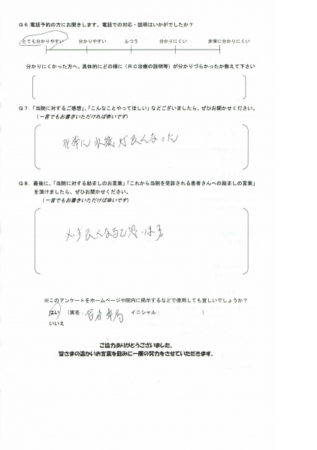 Q6.電話予約の方にお聞きします。電話での対応・説明はいかがでしたか？
とても分かりやすい　分かりやすい　ふつう　分かりにくい　非常に分かりにくい
分かりにくかった方へ。具体的にどの様に（RC治療の説明等）が分かりづらかったか教えて下さい
Q7.「当院に対するご感想」、「こんなことやってほしい」などございましたら、ぜひお聞かせください。
（一言でもお書きいただければ幸いです）
非常に
Q8.最後に、「当院に対する励ましのお言葉」「これから当院を受診される患者さんへの励ましの言葉」
を頂けましたら、ぜひお聞かせください。
（一言でもお書きいただけば幸いです）
※このアンケートをホームページや院内に掲示するなどで使用しても宜しいでしょうか？
はい（実名：　イニシャル：　）
いいえ
ご協力ありがとうございました。
皆さまの温かいお言葉を励みに一層の努力をさせていただきます。